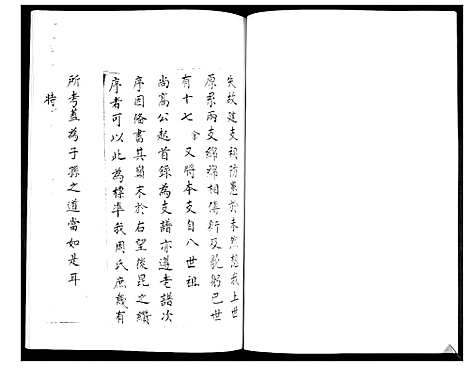 失故建支祠防患於未然想我上世
原系兩支綿綿相傳衍及乾躬巳世
有十七 今又將本支自八世祖
尚富公起首錄為支譜亦遵老譜次
序因俻書其顛末於右望後昆之纘
序者可以此為標準我周氏庶幾有
所考蓋為子孫之道當如是耳
特